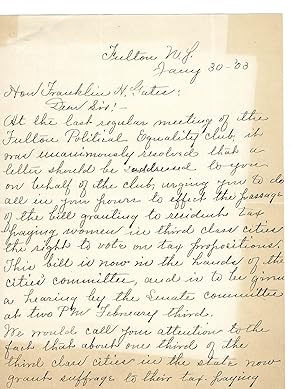 Fulton N.Y.
Jany 30-'03
Hon Franklin N. Gates:
Dear Sir! -
At the last regular meeting of the
Fulton Political Equality Club it
was unanimously resolved that a
letter should be addressed to you
on behalf of the club, urging you to do
all in your power to effect the passage
of the bill granting to resident tax
paying women in third class cities
the right to vote on tax propositions.
This bill is now in the hands of the
cities committee, and is to be given
a hearing by the Senate committee
at two P.M. February third.
We would call your attention to the
fact that about one third of the
third class cities in the state now
grant suffrage to their tax paying